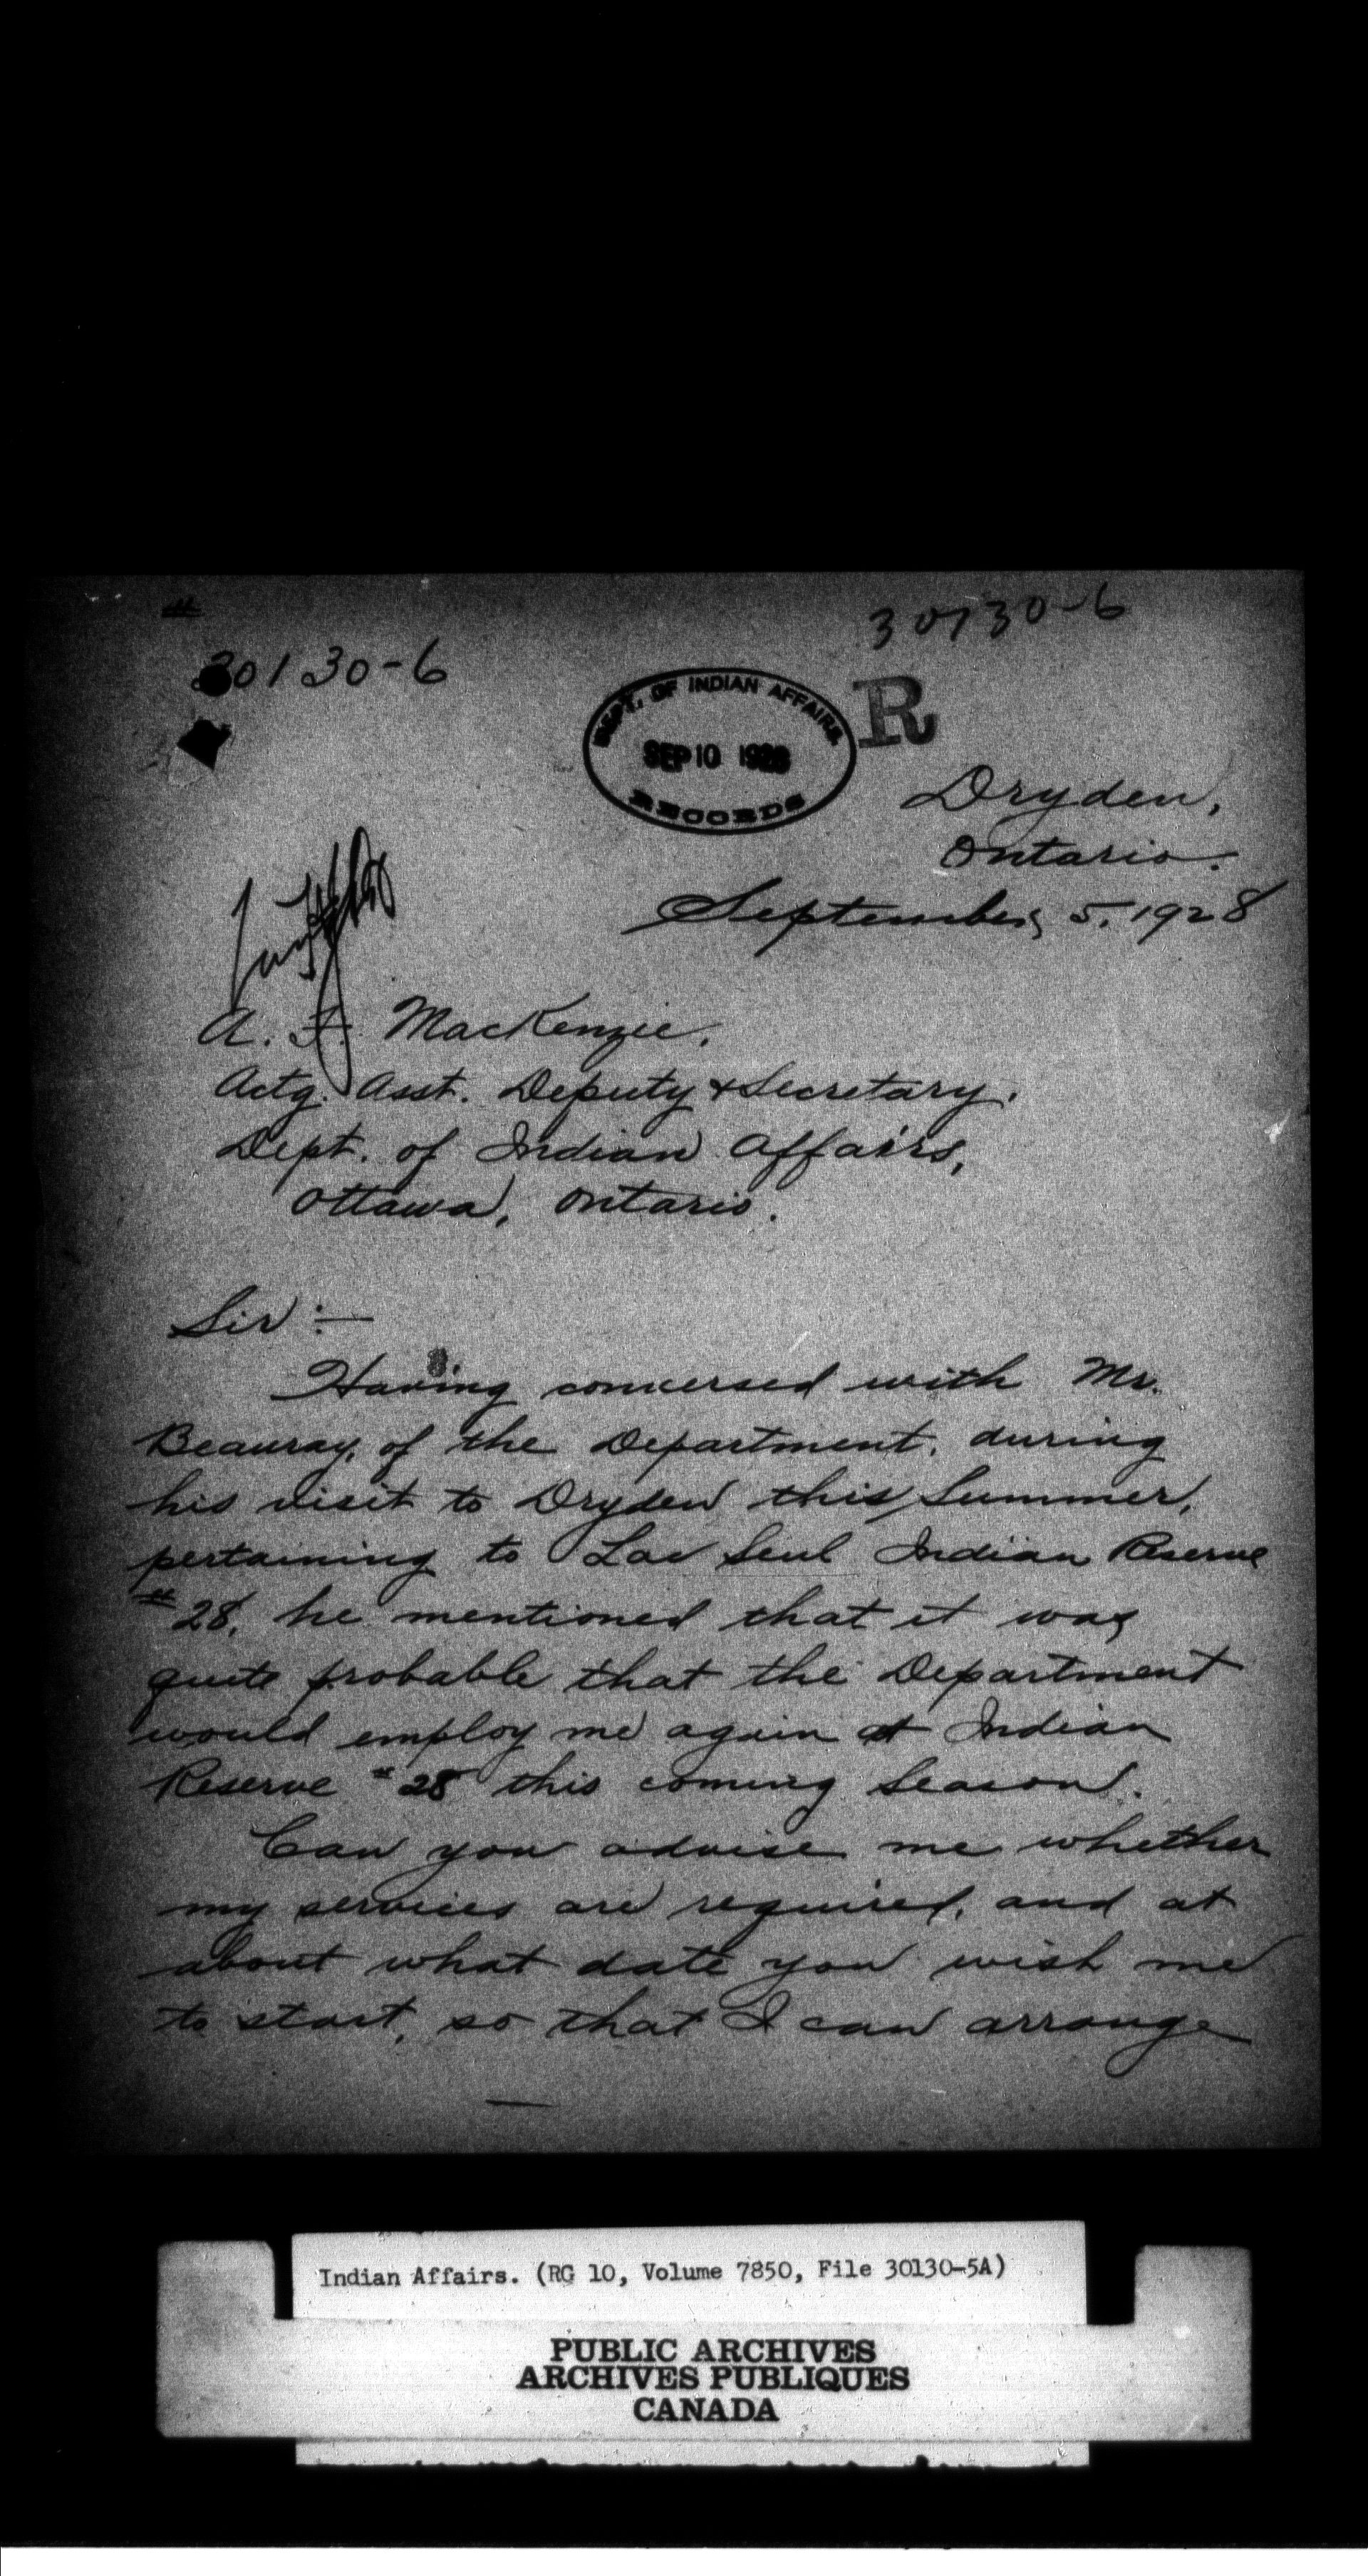 30130-6
30130-6
DEPT. OF INDIAN AFFAIRS
SEP 10 1928
RECORDS
R
Dryden,
Ontario.
September 5, 1928
A. F. MacKenzie,
Actg. Asst. Deputy & Secretary,
Dept. of Indian Affairs,
Ottawa, Ontario.
Sir:—
Having conversed with Mr.
Beauray, of the Department, during
his visit to Dryden this Summer,
pertaining to Lac Seul Indian Reserve
#28, he mentioned that it was
quite probable that the Department
would employ me again at Indian
Reserve #28 this coming Season.
Can you advise me whether
my services are required, and at
about what date you wish me
to start, so that I can arrange
Indian Affairs. (RG 10, Volume 7850, File 30130-5A)
PUBLIC ARCHIVES
ARCHIVES PUBLIQUES
CANADA